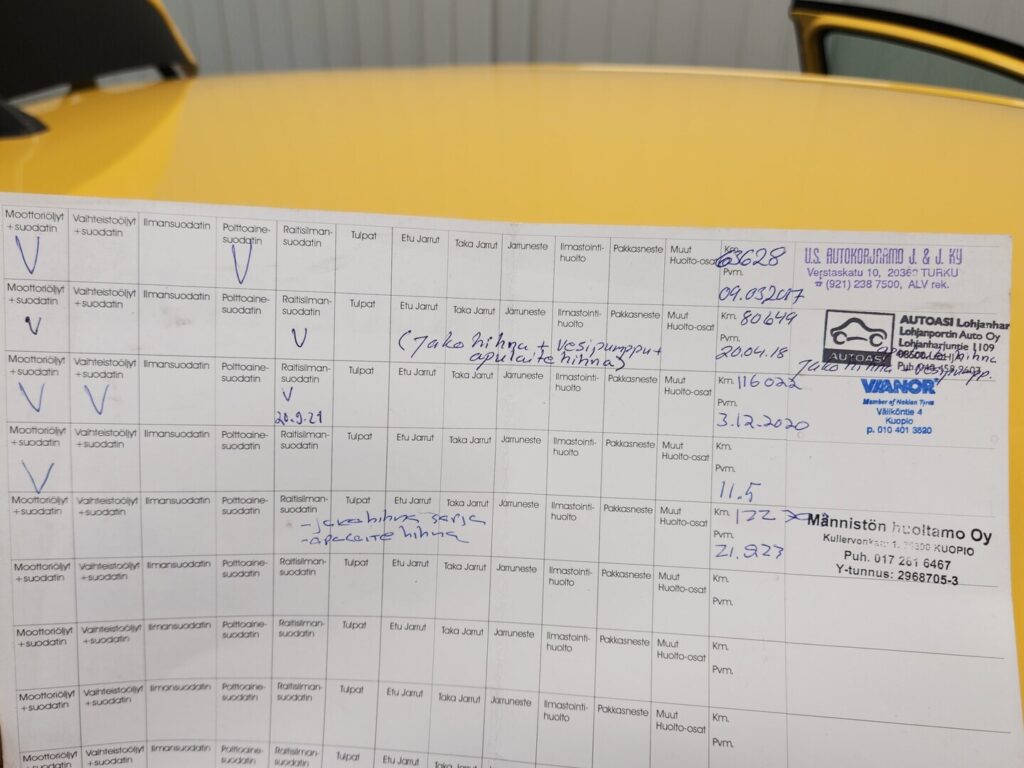 Moottoriöljyt +suodatin Vaihteistoöljyt +suodatin Ilmansuodatin Polttoaine-suodatin Raitisilman-suodatin Tulpat Etu Jarrut Taka Jarrut Jarruneste Ilmastointi-huolto Pakkasneste Muut Huolto-osat Km. 63628
V V
Pvm. 09.03.2017
U.S. AUTOKORJAAMO J. & J. KY
Verstaskatu 10, 20360 TURKU
☎ (921) 238 7500, ALV rek.
Moottoriöljyt +suodatin Vaihteistoöljyt +suodatin Ilmansuodatin Polttoaine-suodatin Raitisilman-suodatin Tulpat Etu Jarrut Taka Jarrut Jarruneste Ilmastointi-huolto Pakkasneste Muut Huolto-osat Km. 80649
V V (Jakohihna + vesipumppu +
apulaitehihna)
Pvm. 20.04.18
AUTOASI
AUTOASI Lohjanhar
Lohjanportin Auto Oy
Lohjanharjuntie 1109
Jakohihna vesipump.
Moottoriöljyt +suodatin Vaihteistoöljyt +suodatin Ilmansuodatin Polttoaine-suodatin Raitisilman-suodatin Tulpat Etu Jarrut Taka Jarrut Jarruneste Ilmastointi-huolto Pakkasneste Muut Huolto-osat Km. 116022
V V V
20.9.21
Pvm. 3.12.2020
VIANOR
Member of Nokian Tyres
Väliköntie 4
Kuopio
p. 010 401 3520
Moottoriöljyt +suodatin Vaihteistoöljyt +suodatin Ilmansuodatin Polttoaine-suodatin Raitisilman-suodatin Tulpat Etu Jarrut Taka Jarrut Jarruneste Ilmastointi-huolto Pakkasneste Muut Huolto-osat Km.
V
Pvm. 11.5
Moottoriöljyt +suodatin Vaihteistoöljyt +suodatin Ilmansuodatin Polttoaine-suodatin Raitisilman-suodatin Tulpat Etu Jarrut Taka Jarrut Jarruneste Ilmastointi-huolto Pakkasneste Muut Huolto-osat Km.
- jakohihna sarja
- apulaite hihna
Pvm. 21.9.23
Männistön huoltamo Oy
Kullervonkatu 1, KUOPIO
Puh. 017 261 6467
Y-tunnus: 2968705-3
Moottoriöljyt +suodatin Vaihteistoöljyt +suodatin Ilmansuodatin Polttoaine-suodatin Raitisilman-suodatin Tulpat Etu Jarrut Taka Jarrut Jarruneste Ilmastointi-huolto Pakkasneste Muut Huolto-osat Km.
Pvm.
Moottoriöljyt +suodatin Vaihteistoöljyt +suodatin Ilmansuodatin Polttoaine-suodatin Raitisilman-suodatin Tulpat Etu Jarrut Taka Jarrut Jarruneste Ilmastointi-huolto Pakkasneste Muut Huolto-osat Km.
Pvm.
Moottoriöljyt +suodatin Vaihteistoöljyt +suodatin Ilmansuodatin Polttoaine-suodatin Raitisilman-suodatin Tulpat Etu Jarrut Taka Jarrut Jarruneste Ilmastointi-huolto Pakkasneste Muut Huolto-osat Km.
Pvm.
Moottoriöljyt +suodatin Vaihteistoöljyt +suodatin Ilmansuodatin Polttoaine-suodatin Raitisilman-suodatin Tulpat Etu Jarrut Taka Jarrut Jarruneste Ilmastointi- Pakkasneste Muut Km.